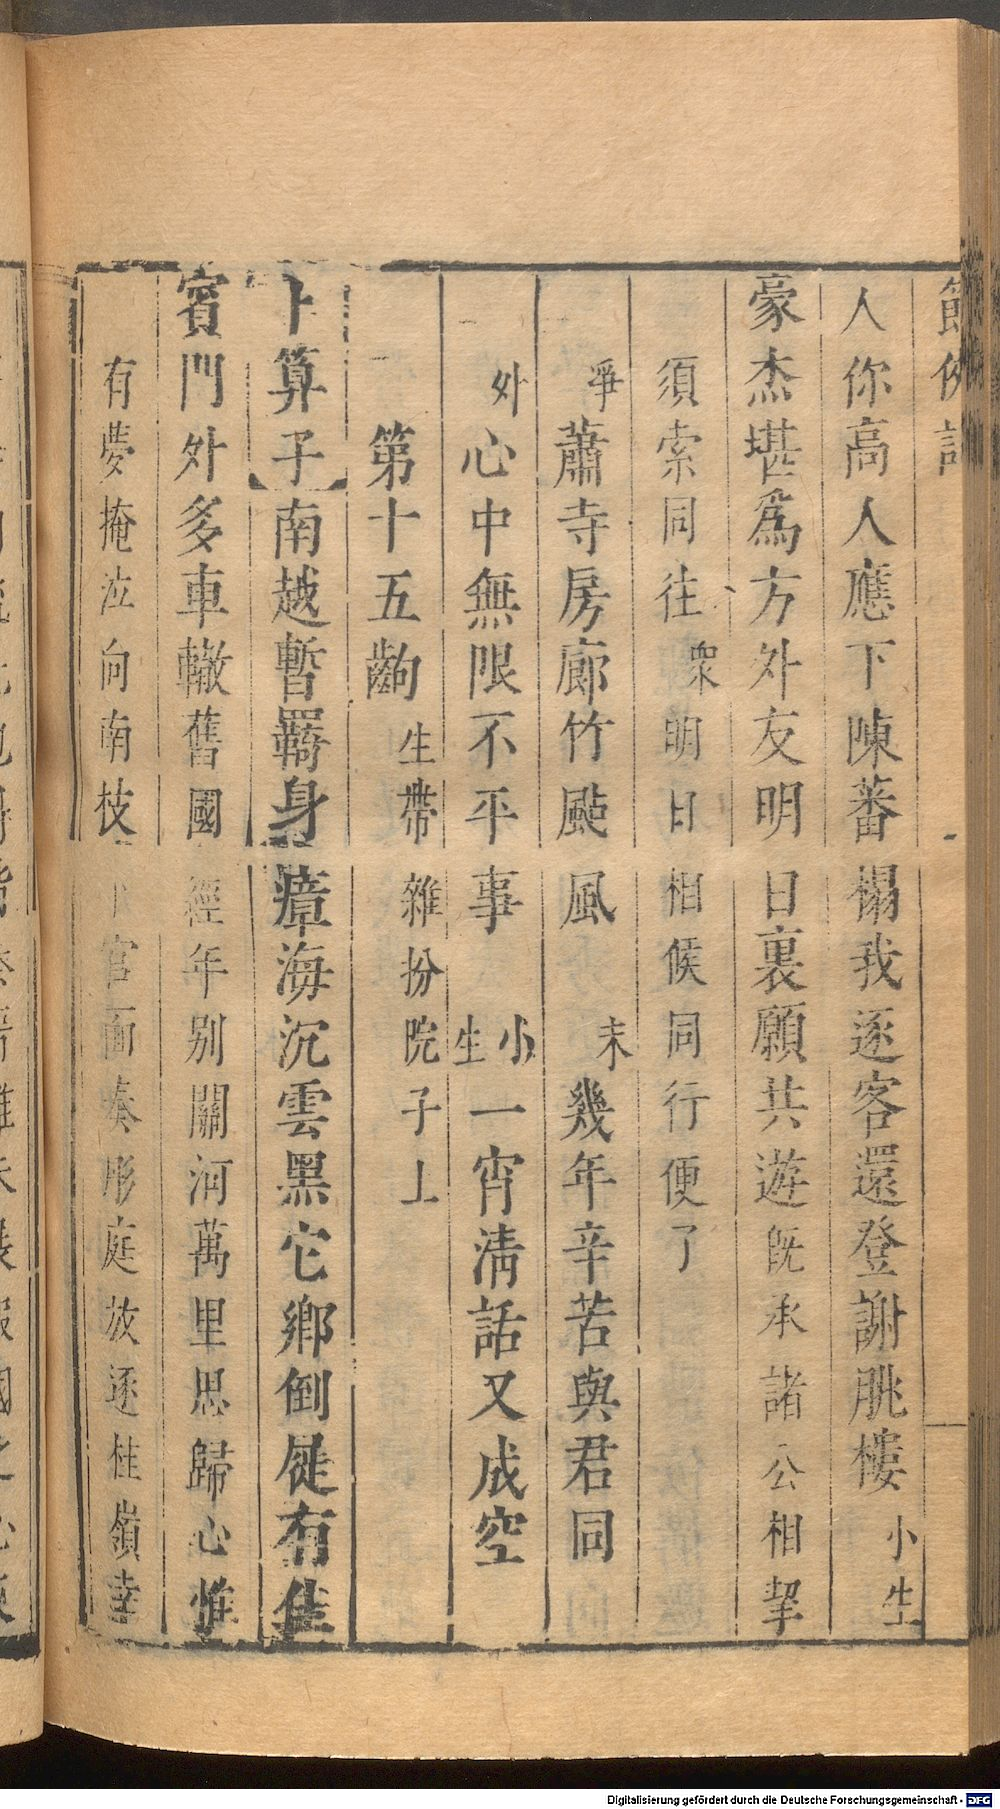 人你高人應下陳蕃榻我逐客還登謝朓樓小生
豪杰堪爲方外友明日裏願共遊既承諸公相挈
須索同往衆明日相候同行便了
淨蕭寺房廊竹颭風末幾年辛苦與君同
外心中無限不平事小生一宵清話又成空
第十五齣生帶雜扮院子上
卜算子南越暫羇身瘴海沉雲黑它鄉倒屣有佳
賓門外多車轍舊國經年別關河萬里思歸心惟
有夢掩泣向南枝下官面奏彤庭放逐桂嶺幸
Digitalisierung gefördert durch die Deutsche Forschungsgemeinschaft - DFG